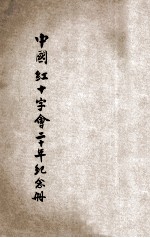 中國紅十字會二十年紀念冊